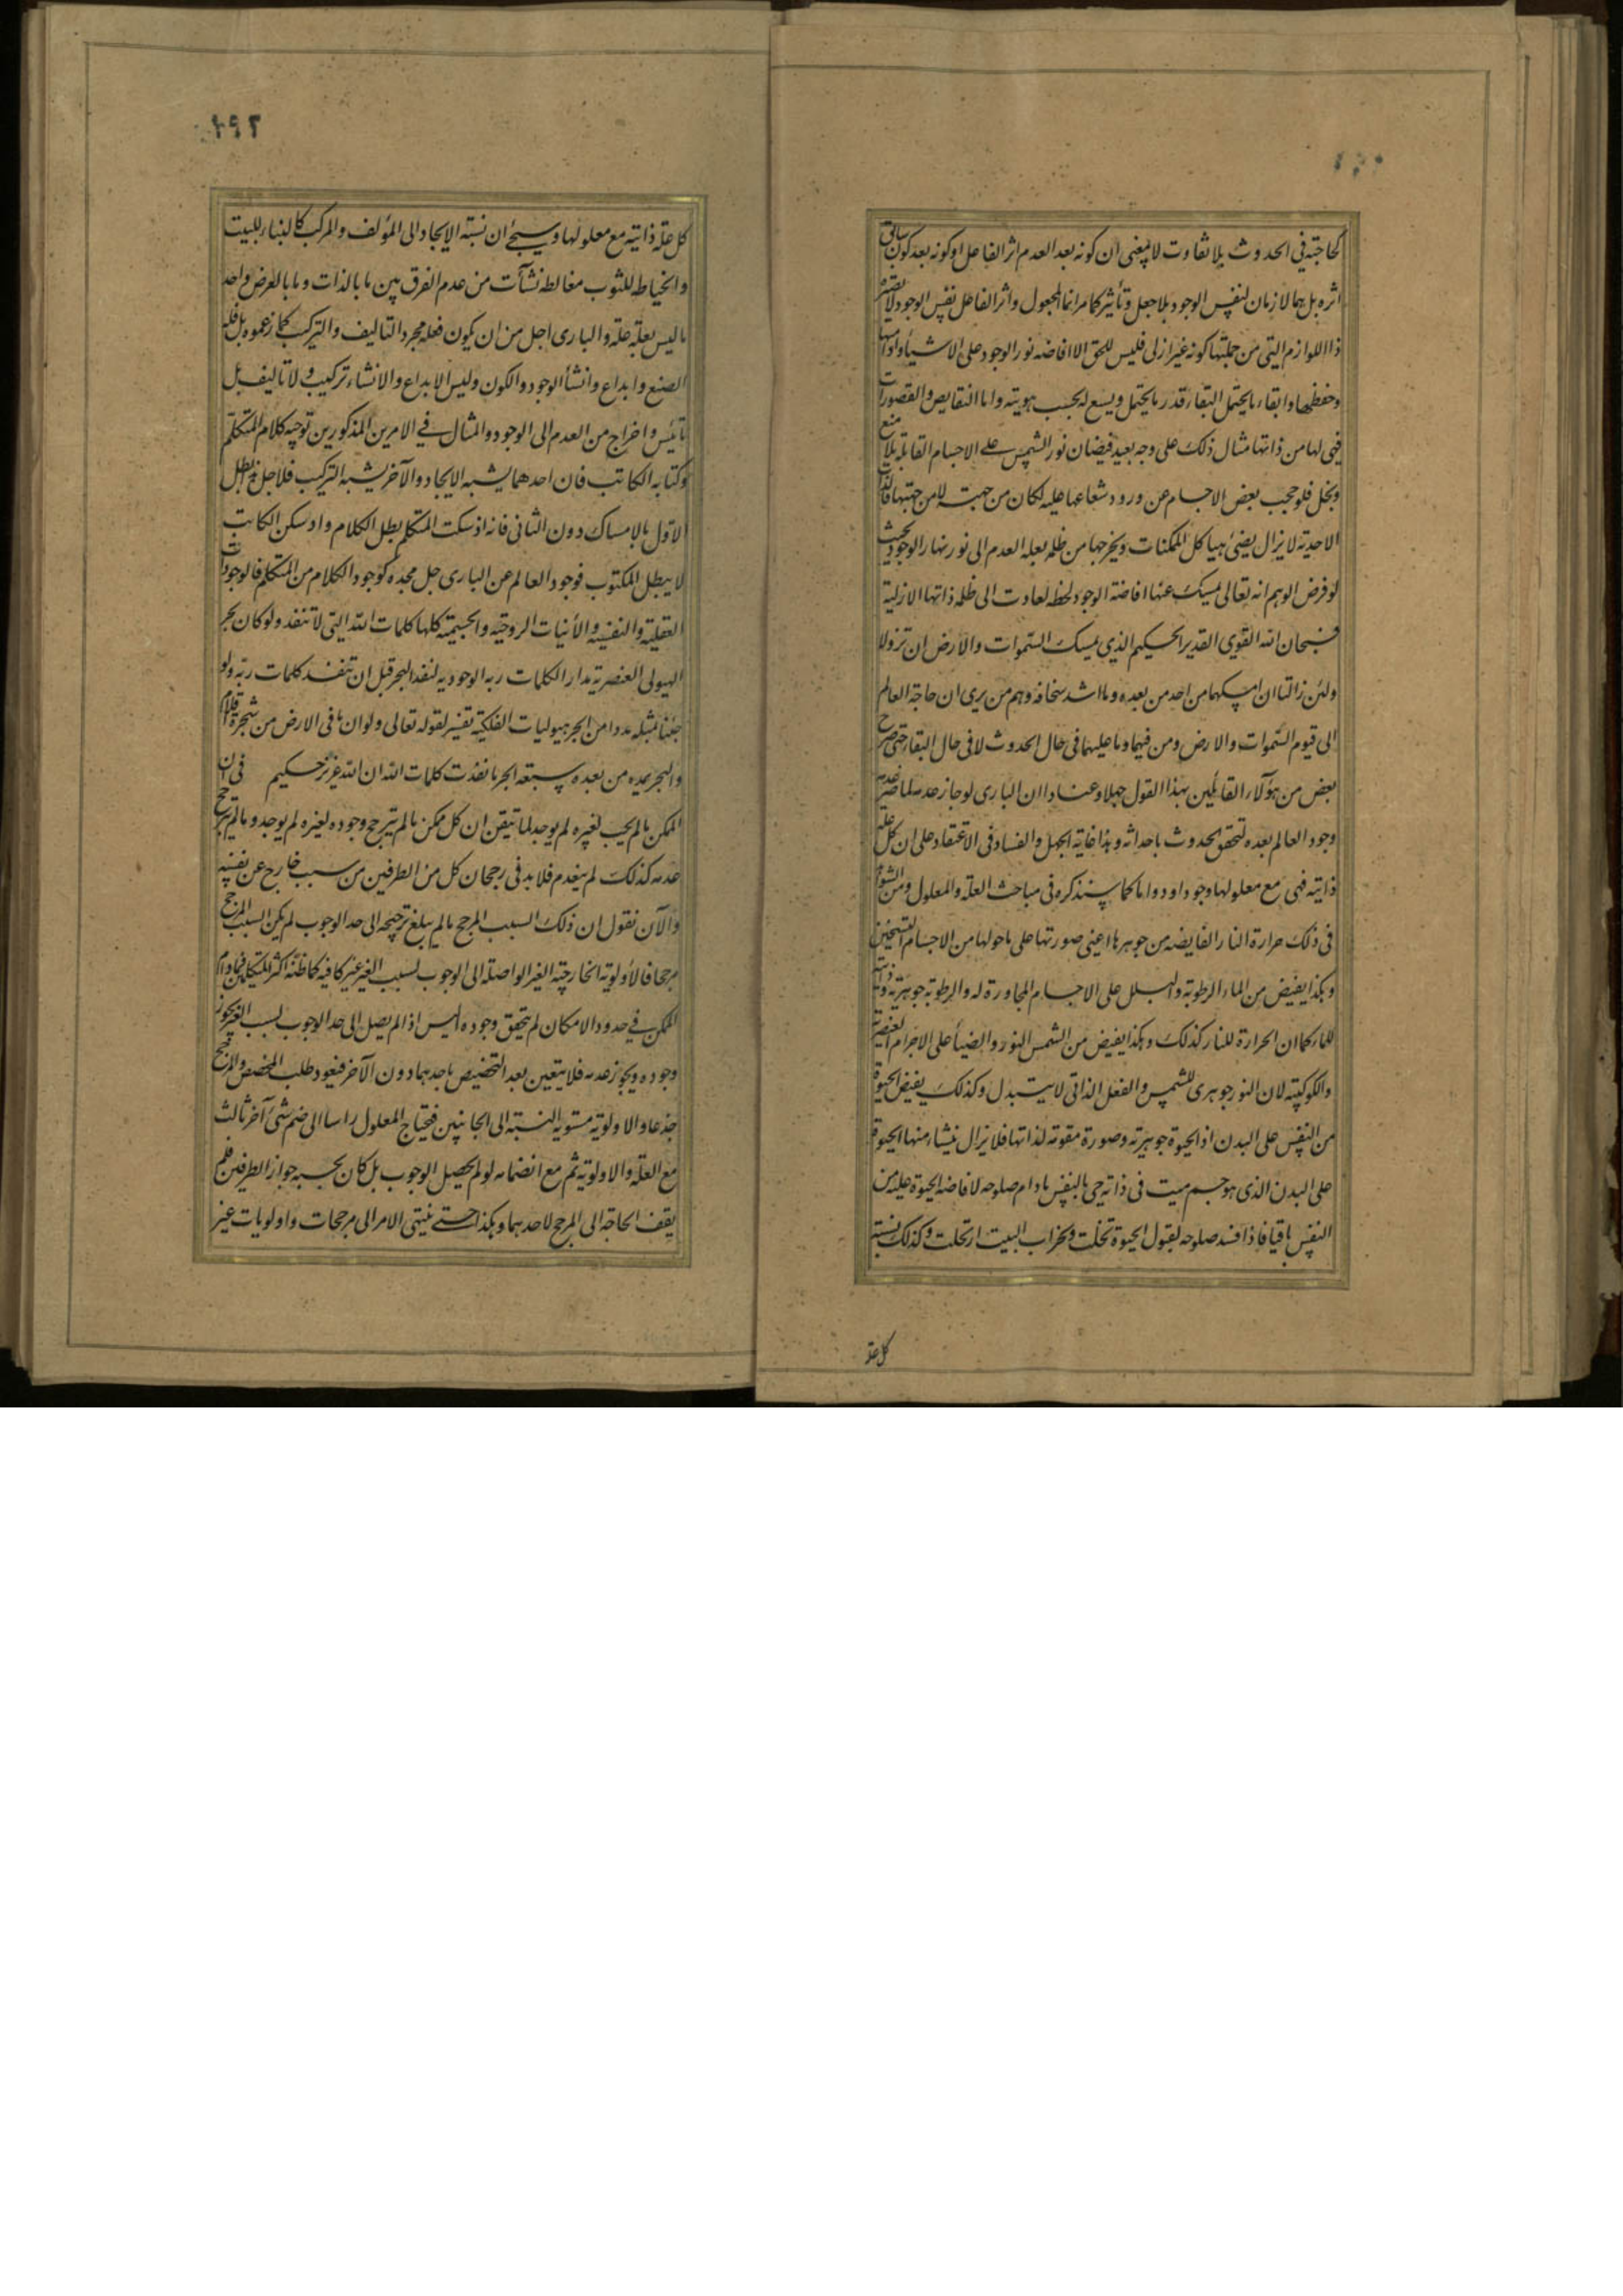 كحاجته في الحدوث بلا تفاوت لا بمعنى ان كونه بعد العدم اثر الفاعل او كونه بعد كون سابق
اثره بل هما لازمان لنفس الوجود بلا جعل وتأثير كما مر انما المجعول واثر الفاعل نفس الوجود لا بصيغة
ذا اللوازم التى من جملتها كونه غير ازلى فليس للحق الا افاضه نور الوجود على الاشياء وادامتها
وحفظها وابقاء ما يحتمل البقاء قدر ما يحتمل ويسع له بحسب هويته واما النقايص والقصورات
فهى لها من ذاتها مثال ذلك على وجه بعيد فيضان نور الشمس على الاجسام القابله بلا منع
وبخل فلو حجب بعض الاجسام عن ورود شعاعها عليه لكان من جهته لا من جهتها فالذات
الاحديه لا يزال يضئ بها هياكل الممكنات ويخرجها من ظلمة ليله العدم الى نور نهار الوجود بحيث
لو فرض الوهم انه تعالى يمسك عنها افاضة الوجود لحظه لعادت الى ظلمه ذاتها الازلية
فسبحان الله القوى القدير الحكيم الذي يمسك السموات والارض ان تزولا
ولئن زالتا ان امسكهما من احد من بعده وما اشد سخافه وهم من يرى ان حاجة العالم
الى قيوم السموات والارض ومن فيهما وما عليهما فى حال الحدوث لا فى حال البقاء حتى صرح
بعض من هؤلاء القائلين بهذا القول جهلا وعنادا ان البارى لو جاز عدمه لما ضر عدمه
وجود العالم بعده لتحقق الحدوث باحداثه وهذا غاية الجهل والفساد فى الاعتقاد على ان كل علة
ذاتيه فهى مع معلولها وجودا ودواما كما سنذكره فى مباحث العلة والمعلول ومن الشواهد
فى ذلك حرارة النار الفايضه من جوهرها اعنى صورتها على ما حولها من الاجسام التسخين
وهكذا يفيض من الماء الرطوبة والبلل على الاجسام المجاورة له والرطوبة جوهرية وذاتية
للماء كما ان الحرارة للنار كذلك وهكذا يفيض من الشمس النور والضياء على الاجرام العنصرية
والكوكبيه لان النور جوهرى للشمس والفعل الذاتى لا يتبدل وكذلك يفيض الحيوة
من النفس على البدن اذ الحيوة جوهرية وصورة مقومة لذاتها فلا يزال ينشاء منها الحيوة
على البدن الذى هو جسم ميت فى ذاته حى بالنفس ما دام صلوحه لافاضه الحيوة عليه من
النفس باقيا فاذا فسد صلوحه لقبول الحيوة تخلت وبخراب البيت ارتحلت وكذلك نسبة
كل علة
٢٩٢
كل علة ذاتيه مع معلولها وسيجئ ان نسبة الايجاد الى المؤلف والمركب كالبناء للبيت
والخياط للثوب مغالطه نشأت من عدم الفرق بين ما بالذات وما بالعرض واخذ
ما ليس بعلة علة والبارى اجل من ان يكون فعله مجرد التاليف والتركيب كما زعموه بل فعله
الصنع وابداع وانشأ الوجود والكون وليس الابداع والانشاء تركيب ولا تاليف بل
تأييس واخراج من العدم الى الوجود والمثال في الامرين المذكورين توجه كلام المتكلم
وكتابه الكاتب فان احدهما يشبه الايجاد والآخر يشبه التركيب فلاجل ذلك بطل
الاول بالامساك دون الثانى فانه اذ سكت المتكلم بطل الكلام واذ سكن الكاتب
لا يبطل المكتوب فوجود العالم عن البارى جل مجده كوجود الكلام من المتكلم فالوجودات
العقلية والنفسيه والأنيات الروحيه والجسمية كلها كلمات الله التى لا تنفد ولو كان بحر
الهيولى العنصرية مدادا لكلمات ربه الوجوديه لنفد البحر قبل ان تنفد كلمات ربه ولو
جئنا بمثله مددا من ابحر هيوليات الفلكية تفسير لقوله تعالى ولو ان ما فى الارض من شجرة اقلام
والبحر يمده من بعده سبعة ابحر ما نفدت كلمات الله ان الله عزيز حكيم فى ان
الممكن ما لم يجب لغيره لم يوجد لما تيقن ان كل ممكن ما لم يترجح وجوده لغيره لم يوجد وما لم يترجح
عدمه كذلك لم ينعدم فلا بد فى رجحان كل من الطرفين من سبب خارج عن نفسه
والآن نقول ان ذلك السبب المرجح ما لم يبلغ ترجيحه الى حد الوجوب لم يكن السبب المرجح
مرجحا فالأولوية الخارجية الغير الواصلة الى الوجوب لسبب الغير غير كافيه كما ظنه اكثر المتكلمين فما دام
الممكن في حدود الامكان لم يتحقق وجوده اليس اذا لم يصل الى حد الوجوب لسبب الغير يجوز
وجوده ويجوز عدمه فلا يتعين بعد التخصيص باحدهما دون الآخر فيعود طلب المخصص والمرجح
جذعا والاولوية مستوية النسبة الى الجانبين فيحتاج المعلول راسا الى ضم شئ آخر ثالث
مع العلة والاولوية ثم مع انضمامه لو لم يحصل الوجوب بل كان بحسبه جواز الطرفين فلم
يقف الحاجة الى المرجح لاحدهما وهكذا حتى ينتهى الامر الى مرجحات واولويات غير